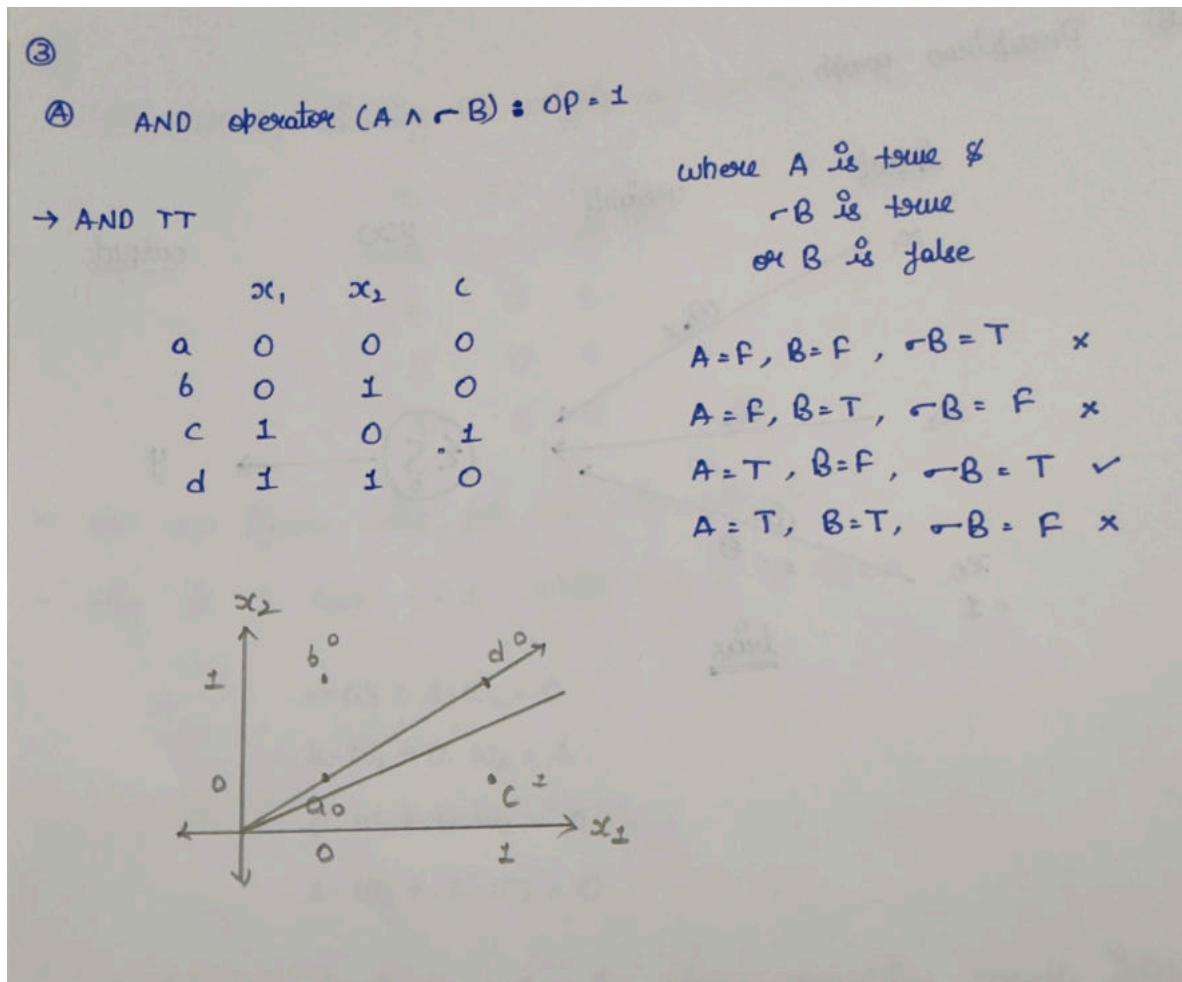 ③
Ⓐ AND operator (A ∧ ¬B) : OP = 1
where A is true &
¬B is true
or B is false
→ AND TT
x₁ x₂ C
a 0 0 0
b 0 1 0
c 1 0 1
d 1 1 0
A = F, B = F, ¬B = T ×
A = F, B = T, ¬B = F ×
A = T, B = F, ¬B = T ✓
A = T, B = T, ¬B = F ×
x₂
b⁰ d⁰
1
0
a₀ c 1
x₁
0 1